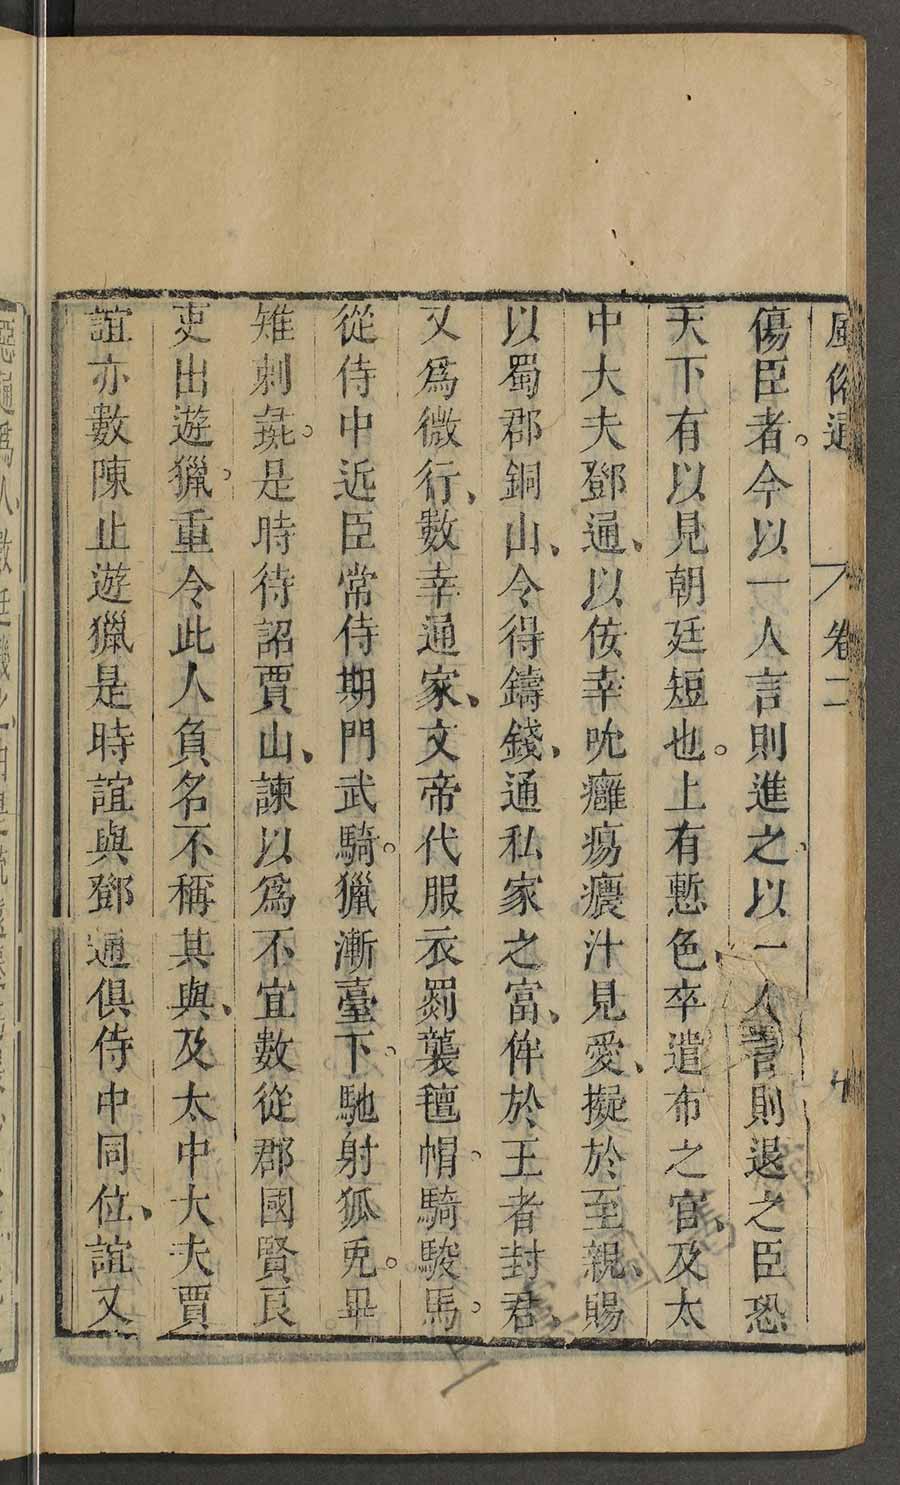 風俗通　卷二
傷臣者。今以一人言則進之、以一人言則退之臣恐
天下有以見朝廷短也。上有慙色、卒遣布之官、及太
中大夫鄧通、以佞幸吮癰瘍癑汁見愛、擬於至親、賜
以蜀郡銅山、令得鑄錢、通私家之富、侔於王者封君、
又爲微行、數幸通家、文帝代服衣罽襲氊帽。騎駿馬。
從侍中近臣常侍期門武騎。獵漸臺下。馳射狐兎。畢
雉刺彘。是時待詔賈山、諫以爲不宜數從郡國賢良
吏出遊獵。重令此人負名不稱其與、及太中大夫賈
誼亦數陳止遊獵是時誼與鄧通俱侍中同位、誼又